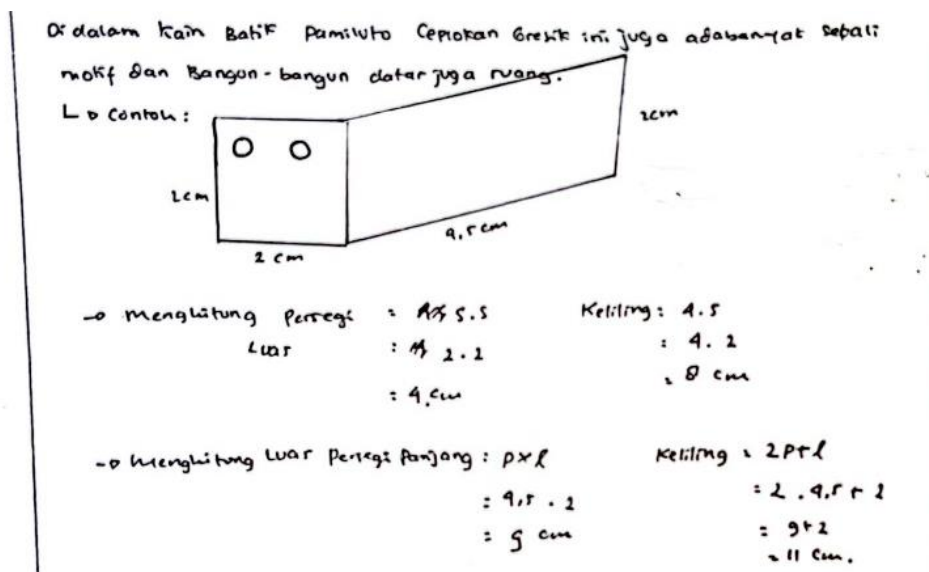 Di dalam kain Batik Pamiluto Ceplokan Gresik ini juga ada banyak sekali
motif dan Bangun-bangun datar juga ruang.
Contoh :
2cm
2cm
4,5 cm
2 cm
→ Menghitung Persegi : S.S Keliling : 4.S
Luas : 2.2 : 4.2
: 4 cm : 8 cm
→ Menghitung Luas Persegi Panjang : p×l Keliling : 2p+l
= 4,5 . 2 = 2 . 4,5 + 2
= 9 cm = 9+2
= 11 cm.